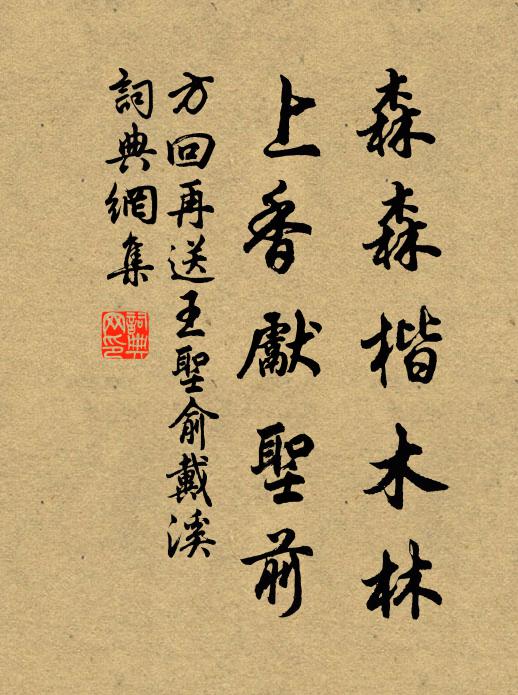 森森楷木林
上香獻聖前
方回再送王聖俞戴溪
詞典網集
詞典
网印